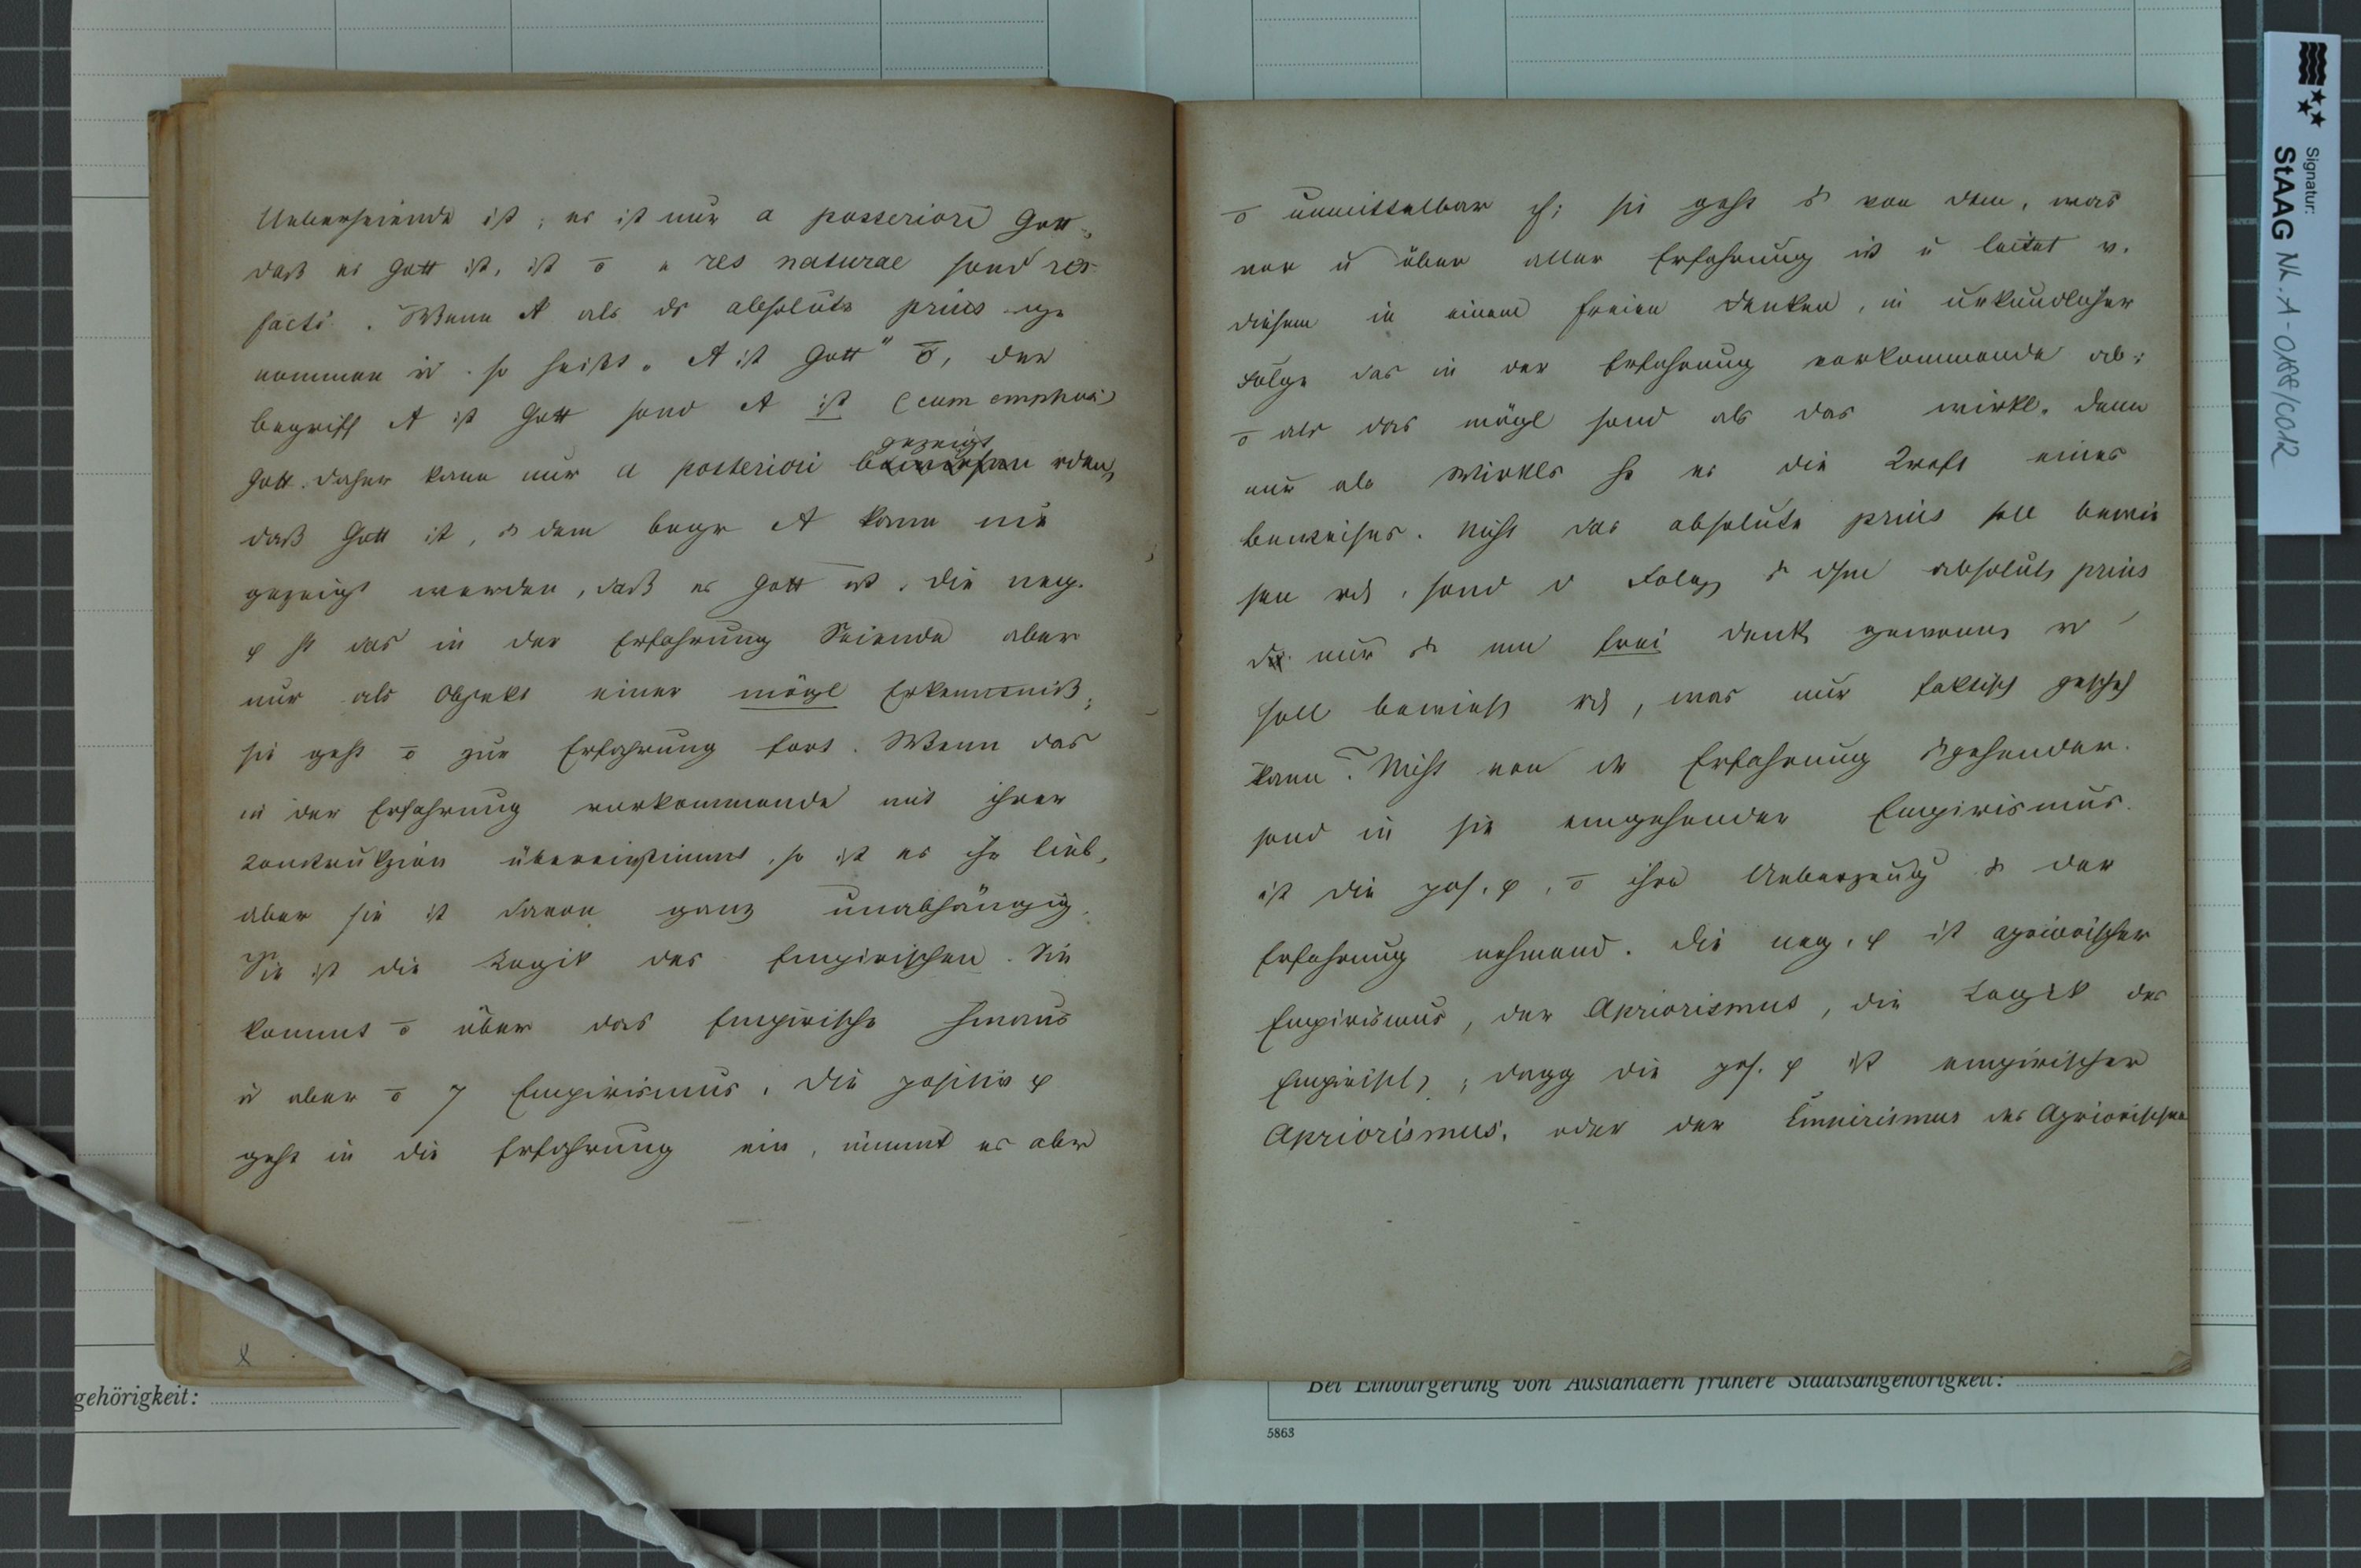 Ueberseiende ist; es ist nur a posteriori Gott,
daß er Gott ist, ist ō e res naturae sond res
facti. Wenn A als ds absolute prius ge
nommen w. so heißt „A ist Gott" ō, der
begriff A ist Gott sond A ist (cum emphasi)
gezeigt
Gott. Daher kann nur a posteriori bewiesen rden,
daß Gott ist, dem begr A kann nie
gezeigt werden, daß er Gott ist. Die neg.
φ ht das in der Erfahrung Seiende aber
nur als Objekt einer mögl Erkenntniß,
sie geht ō zur Erfahrung fort. Wenn das
in der Erfahrung vorkommende mit ihrer
Konstrukzion übereinstimmt, so ist es ihr lieb,
aber sie ist davon ganz unabhängig.
Sie ist die Logik des Empirischen. Sie
kommt ō über das Empirische hinaus
u aber ō Empirismus. Die positiv φ
geht in die Erfahrung ein, nimmt es aber
ō unmittelbar; sie geht von dem, was
vor u über aller Erfahrung ist u leitet v.
diesem in einem freien Denken, in urkundlicher
Folge das in der Erfahrung vorkommende ab:
ō als das mögl sond als das wirkl. denn
nur als Wirkls ht es die Kraft eines
beweises. Nicht das absolute prius soll bewie
sen rd, sond d Folg dsm absolut prius
nur frei denk gewonn w
soll bewies rd, was nur faktisch gescheh
kann. Nicht von dr Erfahrung gehender
sond in sie eingehender Empirismus
ist die pos. φ, ō ihre Ueberzeugg der
Erfahrung nehmend. Die neg. φ ist apriorischer
Empirismus, der Apriorismus, die Logik des
Empirisch; dagg die pos. φ ist empirischer
Apriorismus, oder der Empirismus des Apriorischen
gehörigkeit:
Bei Einbürgerung von Ausländern frühere Staatsangehörigkeit:
5863
Signatur:
StAAG NL.A-0188/C012